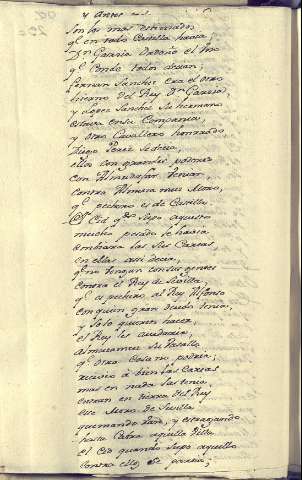 y antes
Son los mas estimados
qe. en toda Castilla havia;
Dn. Garcia Ordoño el Uno
y el Conde todos decian;
fernan Sanchez era el otro
hierno del Rey Dn. Garcia,
y Lopez Sanchez Su hermano
estava en su Compañia,
y otro Cavallero honrrado
Diego Perez se decia,
ellos con grandes poderes
con Almudafar venian,
contra Almucamuz Moro,
qe. pechero es de Castilla
El Cid qe. Supo aquesto
mucho pesado le havia
embiara las Sus Cartas
en ellas assi decia,
qe. no vengan con sus gentes
contra el Rey de Sevilla,
qe. es pechero al Rey Alfonso
con quien gran deudo tenia,
y Si lo quieren hacer,
el Rey les ayudaria,
Almucamuz Su Vasallo
qe. otra Cosa no podria;
recivio à bien las Cartas
mas en nada las tenia,
entran en tierra del Rey
ese Moro de Sevilla
quemando van, y estragando
hasta Cabra aquella Villa
el Cid quando Supo aquello
contra ellos Se partia;